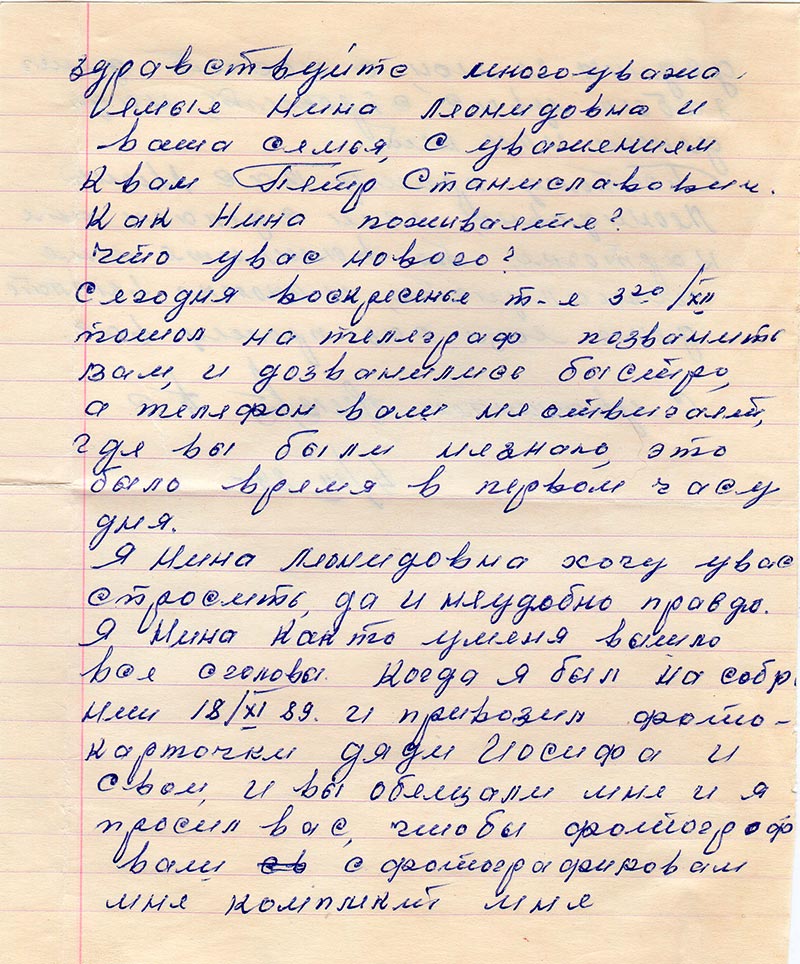 Здравствуйте многоуважа
емые Нина Леонидовна и
ваша семья, с уважением
к вам Петр Станиславович.
Как Нина поживаете?
Что увас нового?
Сегодня воскресенье т-е 3го/XII
пошол на телеграф позванить
вам, и дозванились быстро,
а телефон вам не отвичает,
где вы были незнаю, это
было время в первом часу
дня.
Я Нина Леонидовна хочу увас
спросить, да и неудобно правдо.
Я Нина как то уменя вышло
все сголовы. Когда я был на собр
нии 18/XI 89. и привозил фото-
карточки дяди Иосифа и
свои, и вы обещали мне и я
просил вас, чтобы фотограф
вам сфотографировам
мне комплект мне